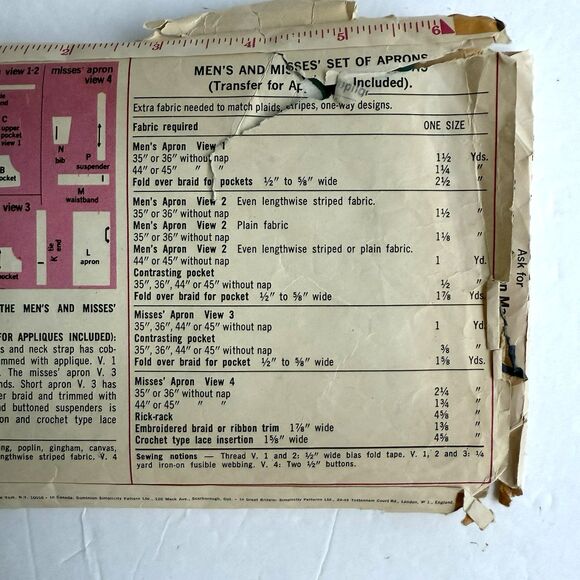 2
3
4
5
6
view 1-2
misses' apron
view 4
C
upper
pocket
view 1
B
pocket
N
bib
P
suspender
M
waistband
view 3
pocket
K tie
end
L
apron
THE MEN'S AND MISSES'
FOR APPLIQUES INCLUDED):
s and neck strap has con-
mmed with applique. V. 1
. The misses' apron V. 3
nds. Short apron V. 3 has
er braid and trimmed with
d buttoned suspenders is
on and crochet type lace
ng, poplin, gingham, canvas,
ngthwise striped fabric. V. 4
MEN'S AND MISSES' SET OF APRONS
(Transfer for Ap Included).
Extra fabric needed to match plaids, stripes, one-way designs.
Fabric required ONE SIZE
Men's Apron View 1
35" or 36" without nap 1½ Yds.
44" or 45" " " 1¼ "
Fold over braid for pockets ½" to ⅝" wide 2½ "
Men's Apron View 2 Even lengthwise striped fabric.
35" or 36" without nap 1½ "
Men's Apron View 2 Plain fabric
35" or 36" without nap 1⅛ "
Men's Apron View 2 Even lengthwise striped or plain fabric.
44" or 45" without nap 1 Yd.
Contrasting pocket
35", 36", 44" or 45" without nap ½ "
Fold over braid for pocket ½" to ⅝" wide 1⅞ Yds.
Misses' Apron View 3
35", 36", 44" or 45" without nap 1 Yd.
Contrasting pocket
35", 36", 44" or 45" without nap ⅜ "
Fold over braid for pocket ½" to ⅝" wide 1⅝ Yds.
Misses' Apron View 4
35" or 36" without nap 2¼ "
44" or 45" " " 1¾ "
Rick-rack 4⅝ "
Embroidered braid or ribbon trim 1⅞" wide 1⅜ "
Crochet type lace insertion 1⅝" wide 4⅝ "
Sewing notions — Thread V. 1 and 2: ½" wide bias fold tape. V. 1, 2 and 3: ¼
yard iron-on fusible webbing. V. 4: Two ½" buttons.
York, N.Y. 10016 • In Canada: Dominion Simplicity Pattern Ltd., 120 Mack Ave., Scarborough, Ont. • In Great Britain: Simplicity Patterns Ltd., 39-45 Tottenham Court Rd., London, W 1, England
Ask for